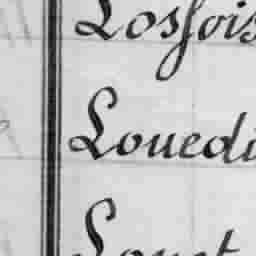 Losfois
Louedi
Louet